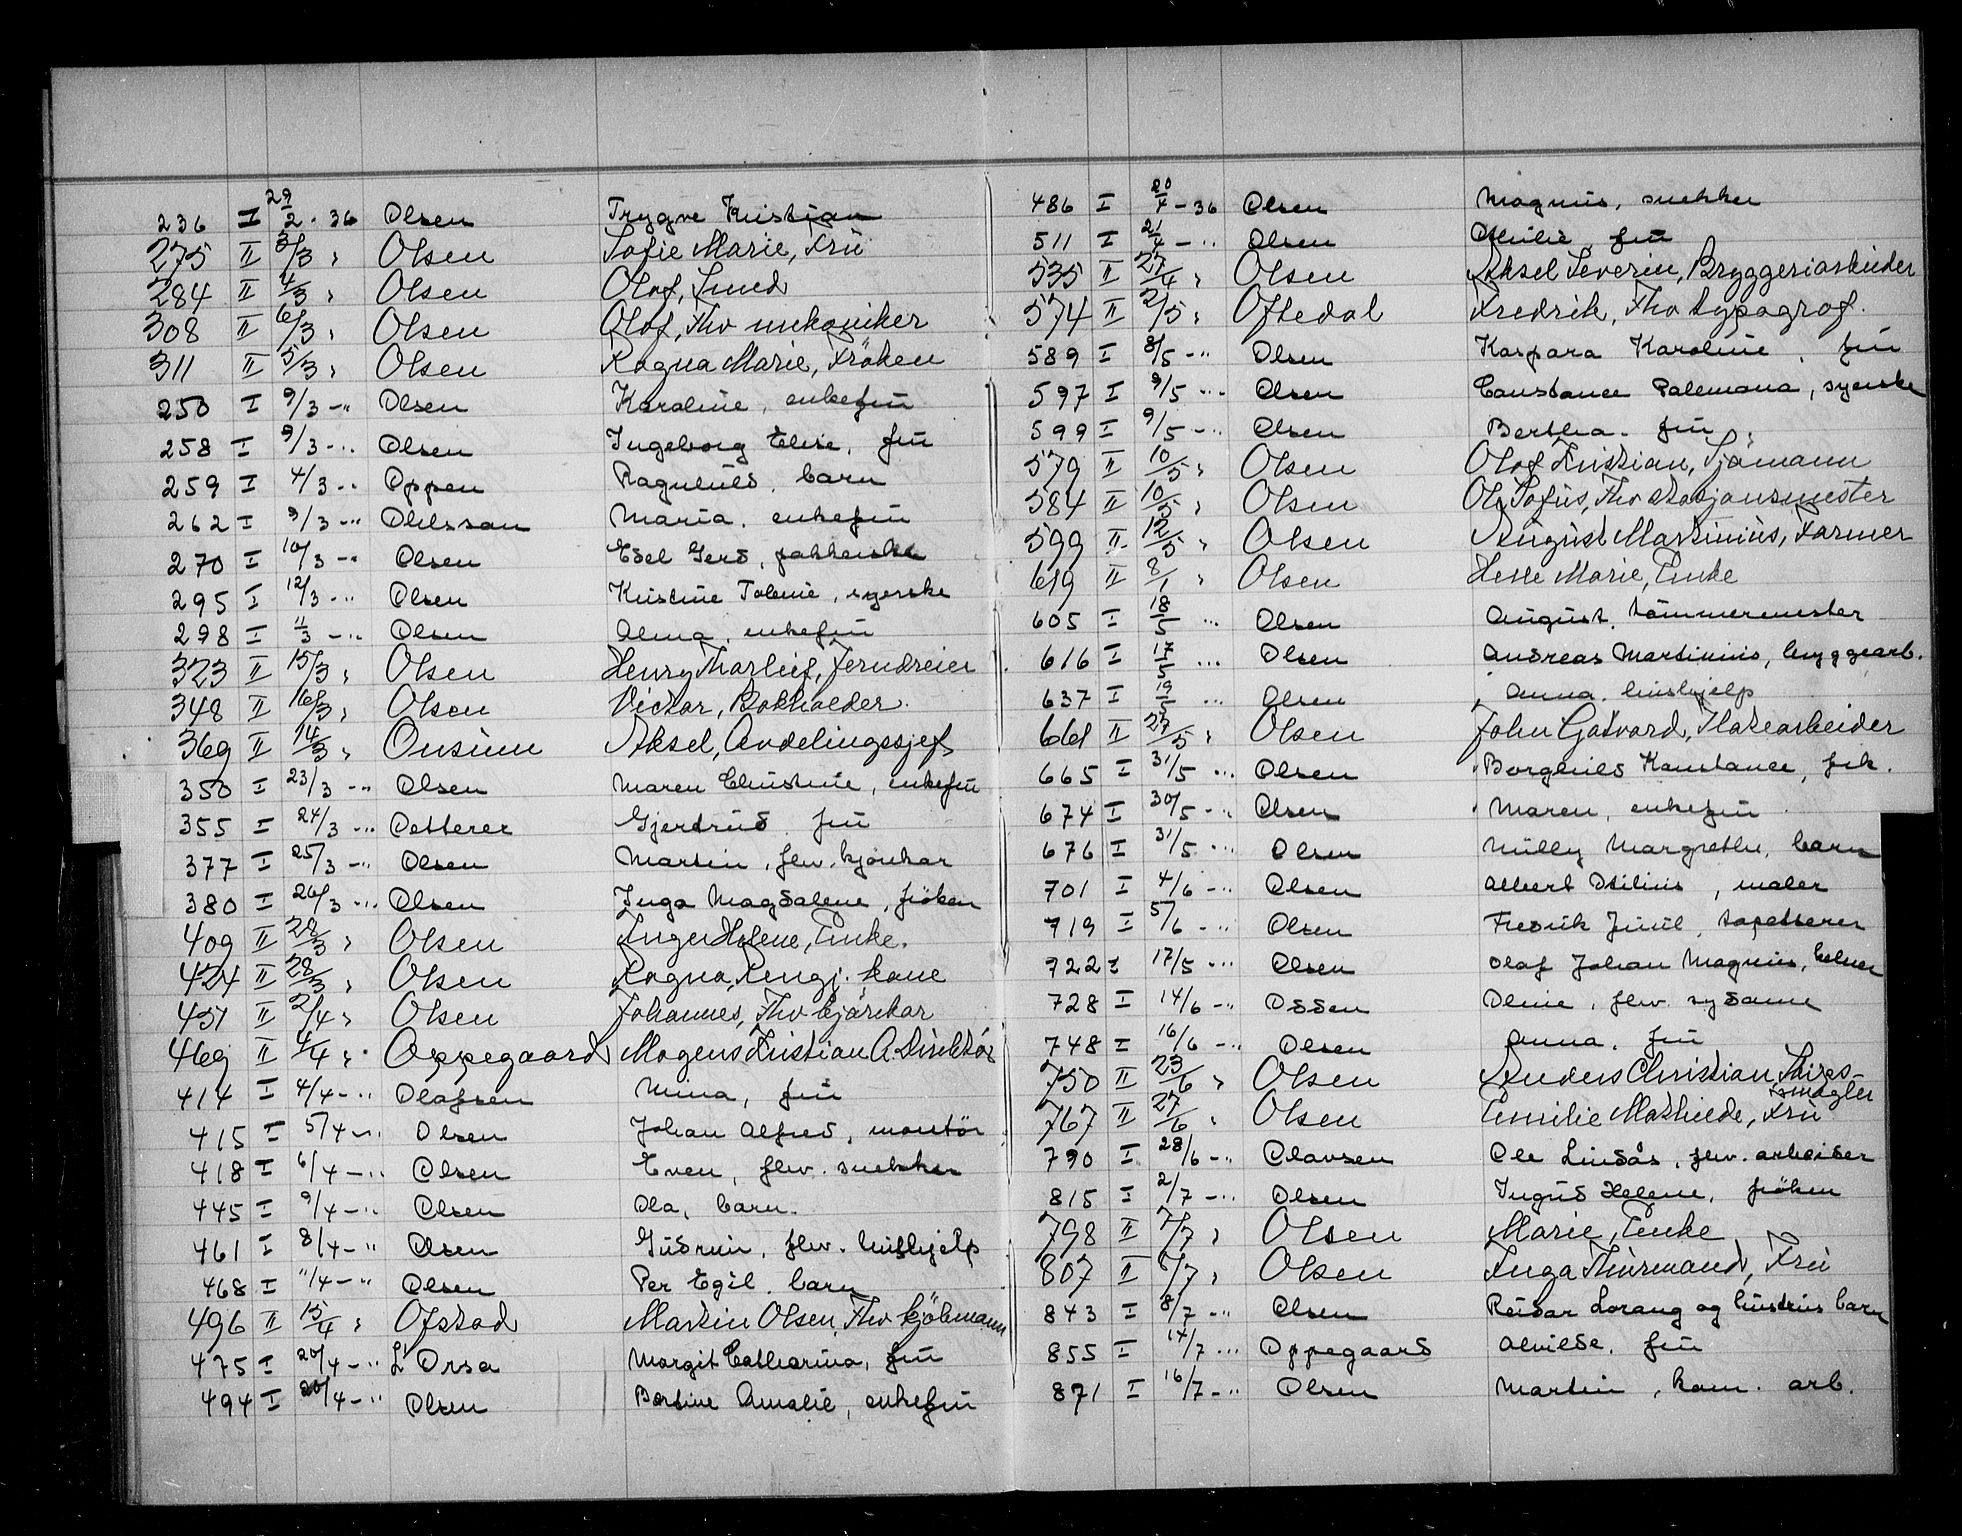 236 I 29/2-36 Olsen Trygve Kristian
275 II 3/3 " Olsen Sofie Marie, Fru
284 II 4/3 " Olsen Olof, Smed
308 II 6/3 " Olsen Olof, Fhv mekaniker
311 II 5/3 " Olsen Ragna Marie, Fröken
250 I 9/3 -" Olsen Karoline, enkefru
258 I 9/3 -" Olsen Ingeborg Elise, fru
259 I 4/3 -" Oppen Ragnhild, barn
262 I 9/3 -" Ohlsson Maria, enkefru
270 I 10/3 -" Olsen Edel Gerd, pakkerske
295 I 12/3 -" Olsen Kristine Tolenie, syerske
298 I 11/3 -" Olsen Alma, enkefru
323 II 15/3 " Olsen Henry Thorleif, Jerndreier
348 II 16/3 " Olsen Victor, Bokholder
369 II 14/3 " Onsum Aksel, Avdelingssjef
350 I 23/3 -" Olsen Maren Christine, enkefru
355 I 24/3 -" Oetterer Gjertrud, fru
377 I 25/3 -" Olsen Martin, fhv. kjørekar
380 I 26/3 -" Olsen Inga Magdalene, fröken
409 II 28/3 " Olsen Inger Helene, Enke.
424 II 28/3 " Olsen Ragna, Rengj. kone
451 II 2/4 " Olsen Johannes, Fhv kjörekar
469 II 4/4 " Oppegaard Mogens Kristian A. Direktör
414 I 4/4 -" Olafsen Mina, fru
415 I 5/4 -" Olsen Johan Alfred, montör
418 I 6/4 -" Olsen Even, fhv. snekker
445 I 9/4 -" Olsen Ola, barn.
461 I 8/4 -" Olsen Gudrun, fhv. hushjelp
468 I 11/4 -" Olsen Per Egil, barn
496 II 15/4 " Ofstad Martin Olsen, Fhv kjöbmann
475 I 20/4 -" L' Orsa Margit Catharina, fru
494 I 20/4 -" Olsen Bertine Amalie, enkefru
486 I 20/4 -36 Olsen Magnus, snekker
511 I 21/4 -" Olsen Othilie, fru
535 II 27/4 " Olsen Aksel Severin, Bryggeriarbeider
574 II 2/5 " Oftedal Fredrik, Fhv typograf.
589 I 8/5 -" Olsen Kaspara Karoline, fru
597 I 9/5 -" Olsen Constance Palemana, syerske
599 I 9/5 -" Olsen Bertha, fru
579 II 10/5 " Olsen Olof Kristian, Sjömann
584 II 10/5 " Olsen Ole Sofus, Fhv stasjonsmester
599 II 12/5 " Olsen August Martinius, Farmer
619 II 8/1 " Olsen Helle Marie, Enke
605 I 18/5 " Olsen August, tömmermester
616 I 17/5 " Olsen Andreas Martinius, bryggearb.
637 I 19/5 " Olsen Anna, hushjelp
661 II 27/5 " Olsen John Gotvard, Platearbeider
665 I 31/5 -" Olsen Borghild Konstance, frk.
674 I 30/5 -" Olsen Maren, enkefru
676 I 31/5 -" Olsen Milly Margrethe, barn
701 I 4/6 -" Olsen Albert Otilius, maler
719 I 5/6 -" Olsen Fredrik Juul, tapetserer
722 I 17/5 -" Olsen Olaf Johan Magnus, kelner
728 I 14/6 -" Odden Oline, fhv. sydame
748 I 16/6 -" Olsen Anna, fru
750 II 23/6 " Olsen Anders Christian, Skips-
megler
767 II 27/6 " Olsen Emilie Mathilde, Fru
790 I 28/6 -" Olavsen Ole Lindås, fhv. arbeider
815 I 2/7 -" Olsen Ingrid Helene, fröken
798 II 7/7 " Olsen Marie, Enke
807 II 6/7 " Olsen Inga Thurmand, Fru
843 I 8/7 -" Olsen Reidar Lorang og hustrus barn
855 I 14/7 -" Oppegaard Alvilde, fru
871 I 16/7 -" Olsen Martin, kom. arb.